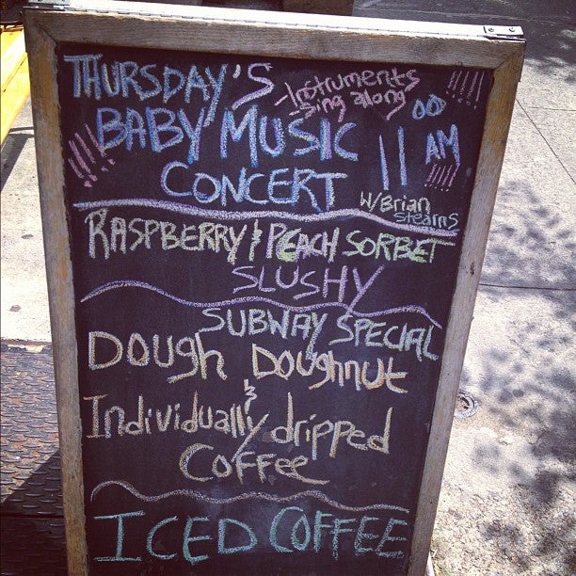 THURSDAY'S
-Instruments
-Sing along
BABY MUSIC
11⁰⁰ AM
!!!!!
!!!!
!!!!!
CONCERT
W/Brian
Stearns
RASPBERRY & PEACH SORBET
SLUSHY
SUBWAY SPECIAL
DOUGH DOUGHNUT
&
Individually dripped
COFFEE
ICED COFFEE